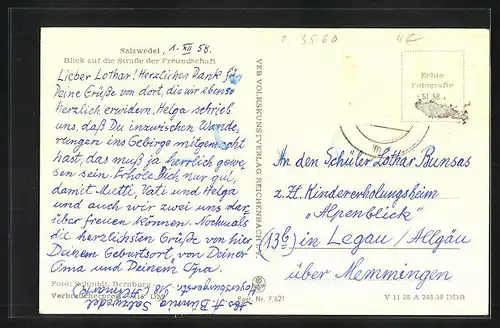 Salzwedel, 1. XII 58.
Blick auf die Straße der Freundschaft
Lieber Lothar! Herzlichen Dank für
Deine Grüße von dort, die wir ebenso
herzlich erwidern. Helga schrieb
uns, daß Du inzwischen Wande,
rungen ins Gebirge mitgemacht
hast, das muß ja herrlich gewe,
sen sein. Erhole Dich nur gut,
damit Mutti, Vati und Helga
und auch wir zwei uns der
über freuen können. Nochmals
die herzlichsten Grüße von hier
Deinem Geburtsort, von Deiner
Oma und Deinem Opa.
Foto: Schmidt, Bernburg
Verbraucherpreis DM
Best. Nr. 7/621
Salzwedel
VEB VOLKSKUNSTVERLAG REICHENBACH i. V.
Echte
Fotografie
An den Schüler Lothar Bunsas
z. Zt. Kindererholungsheim
„Alpenblick"
(13b) in Legau/Allgäu
über Memmingen
V 11 28 A 246.58 DDR